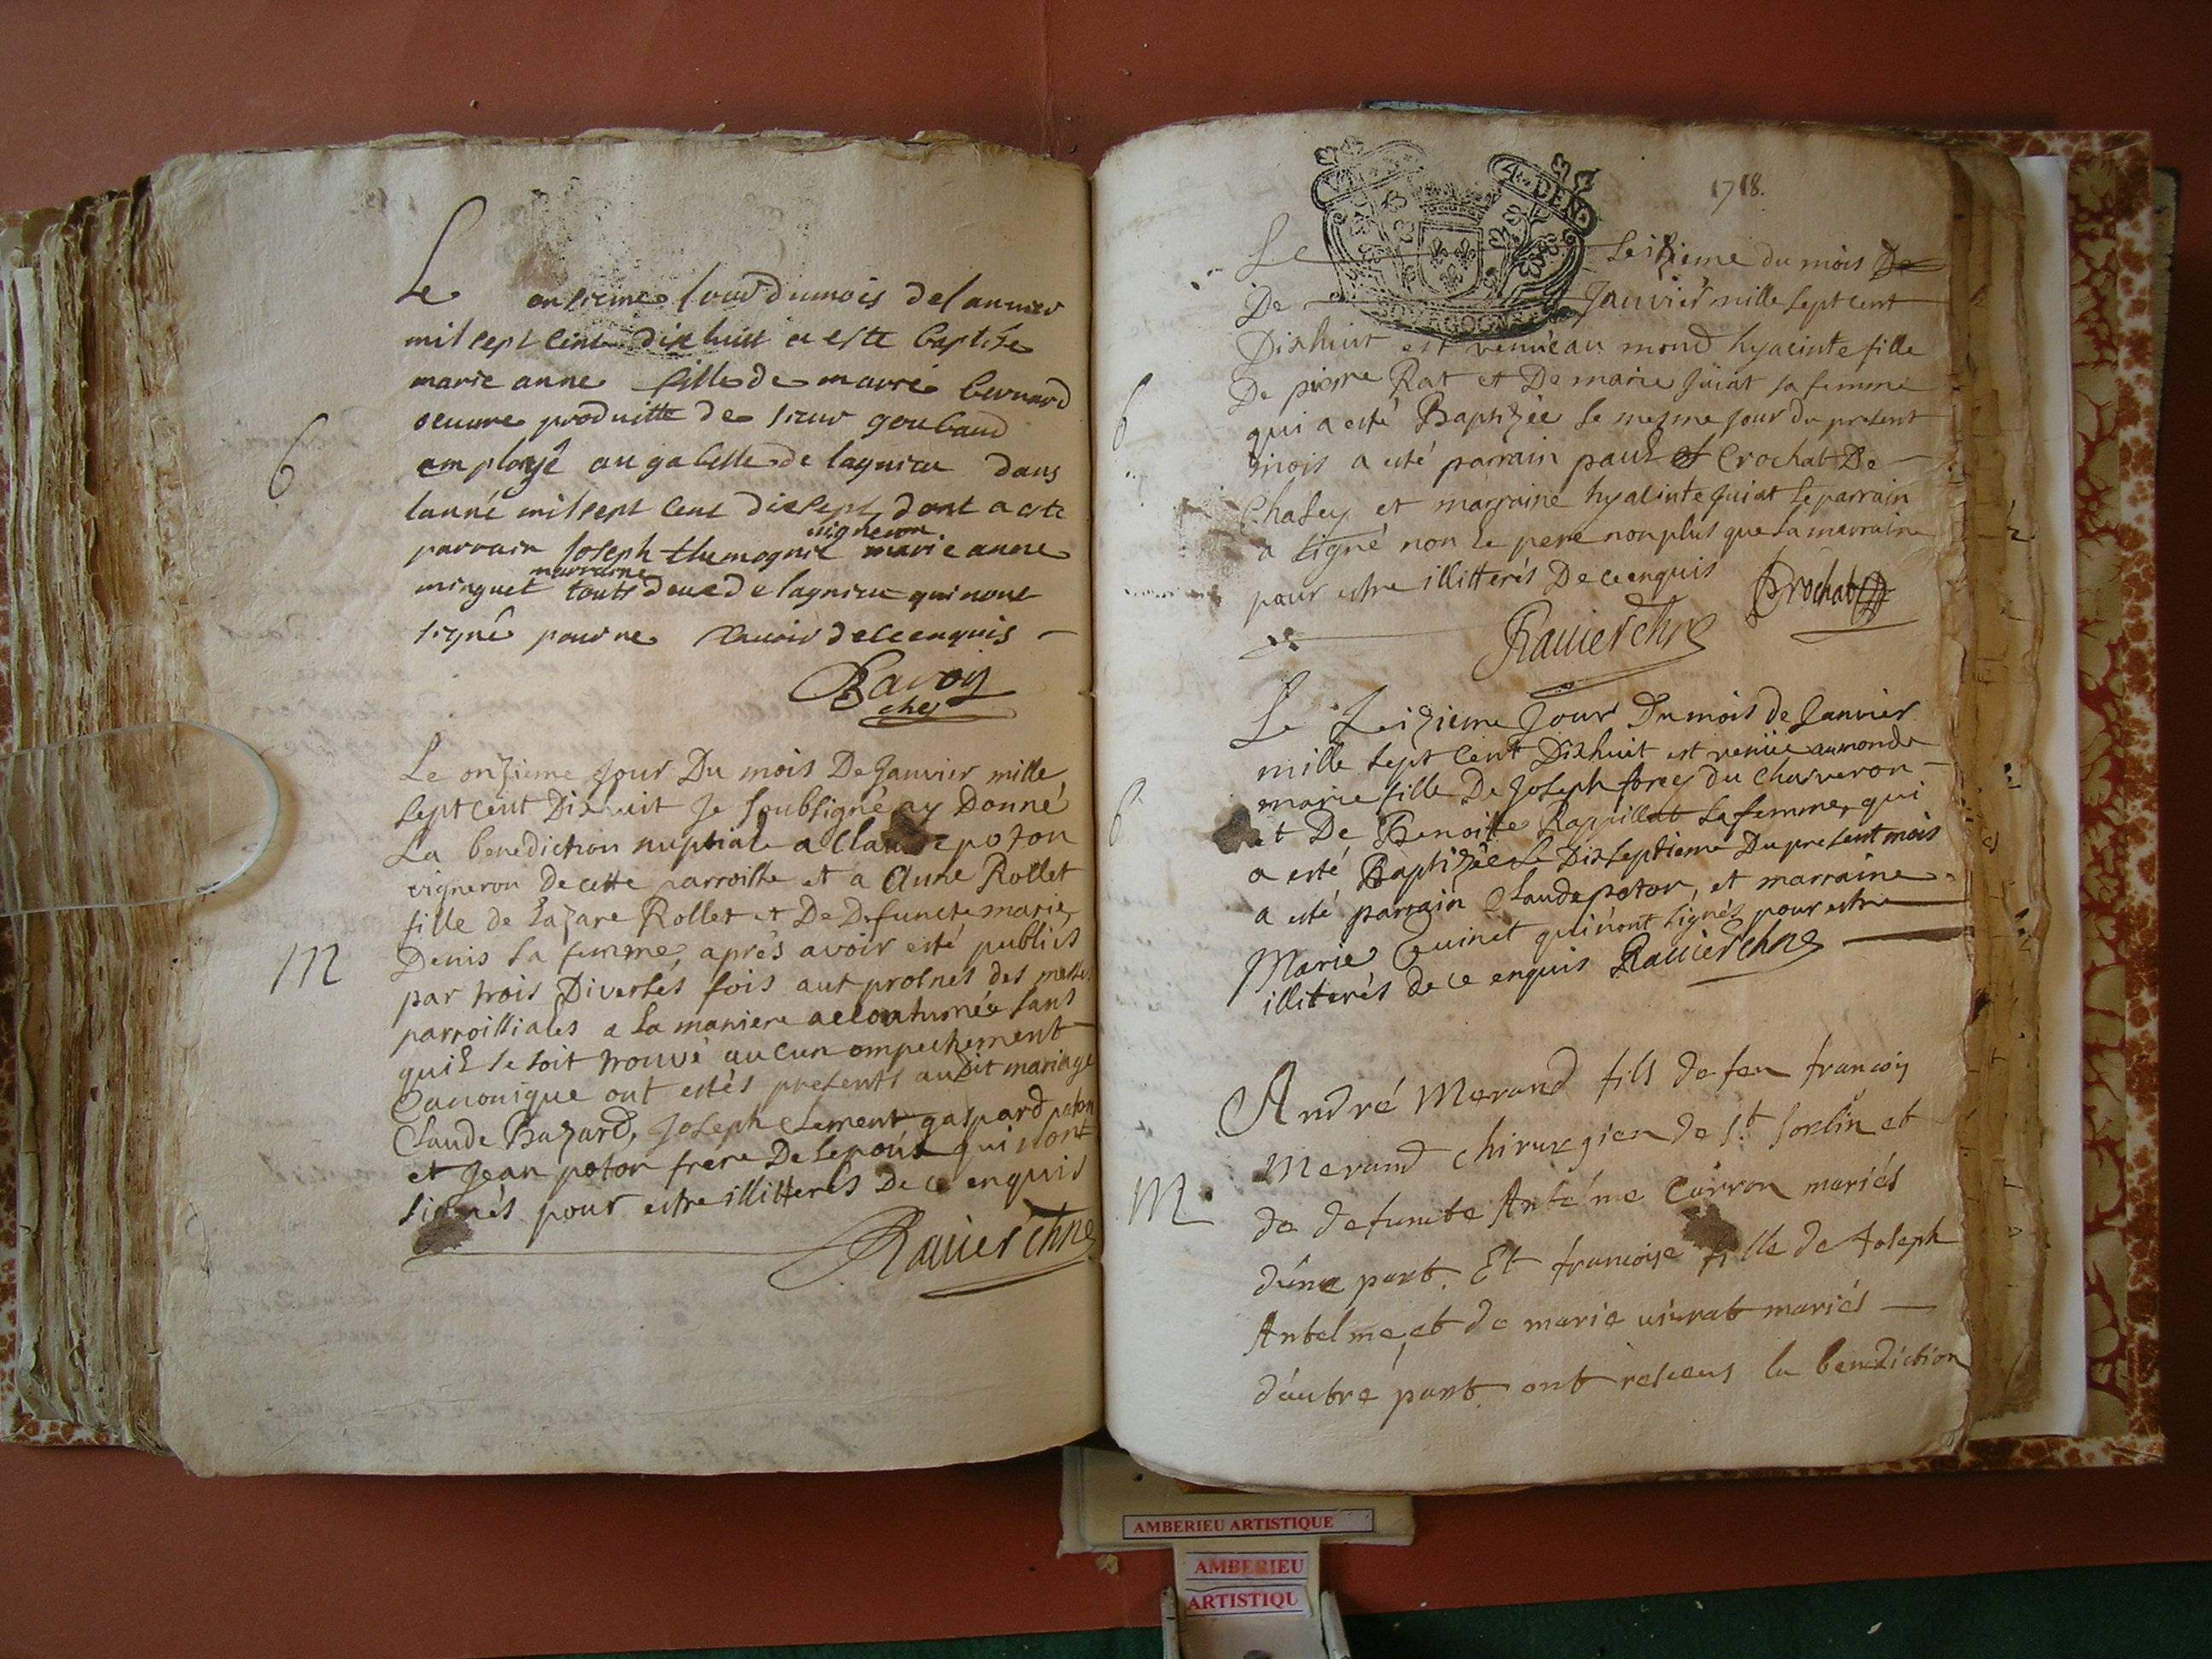 Le onsieme jour du mois de lannee
mil sept cent dix huit a este baptise
marie anne fille de marie bernard
oeuure produitte de sieur goubaud
employé au gabelle de lagnieu dans
lanné mil sept cent disept dont a ete
vigneron
parrain Joseph marie anne
marraine
minguet touts deux de lagnieu qui nont
signé pour ne scauoir de ce enquis
B
Le onzieme Jour Du mois De Janvier mille
sept cent Dixhuit Je soubsigné ay Donné
La benediction nuptiale a Claude poton
vigneron De cette parroisse et a Anne Rollet
fille de Lazare Rollet et De Defuncte marie
Denis sa femme, aprés avoir esté publiés
par trois Diverses fois aut prosnes des messes
parroissiales a la maniere accoutumée sans
M
quil se soit trouvé aucun ompechement
Canonique ont estés presents audit mariage
Claude Bazard, Joseph Clement gaspard poton
et Jean poton frere De Lepoux qui nont
signés pour estre illitterés De ce enquis
Ravier
1718.
4 DEN
Le seizieme du mois De
De Janvier mille sept cent
Dixhuit est venüe au mond hyacinte fille
De pierre Rat et De marie Juiat sa femme
B
qui a esté Baptizée le mesme jour du present
mois a esté parrain paul Crochat De
Chasey et marraine hyacinte Juiat Le parrain
a signé non le pere non plus que la marraine
pour estre illitterés De ce enquis Crochat
Ravier
Le Seizieme Jour Du mois de Janvier
mille sept cent Dixhuit est venüe au monde
marie fille De Joseph forey du Charveron
B
et De Benoitte sa femme, qui
a esté Baptizée Le Dixseptieme Du present mois
a esté parrain Claude poton, et marraine
Marie Quinet qui nont signés pour estre
illiterés de ce enquis Ravier
André Morand fils de feu francois
Morand chirurgien de St. Sorlin et
M
de defuncte Antelme Carron mariés
d'une part. Et francoise fille de Joseph
Antelme, et de marie mariés
d'autre part ont receus la benediction
AMBERIEU ARTISTIQUE
AMBERIEU
ARTISTIQU